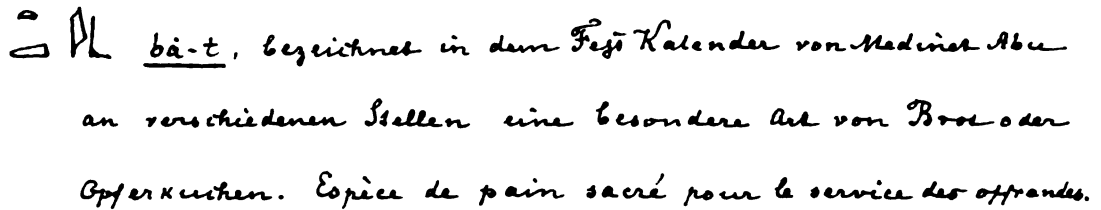 bȧ-t, bezeichnet in dem Fest Kalender von Medinet Abu
an verschiedenen Stellen eine besondere Art von Brot oder
Opferkuchen. Espèce de pain sacré pour le service des offrandes.